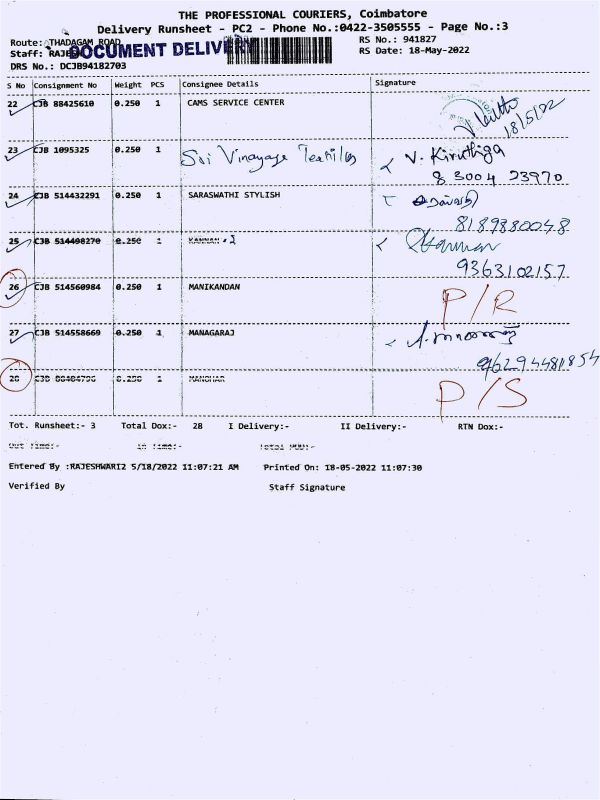 THE PROFESSIONAL COURIERS, Coimbatore
Delivery Runsheet - PC2 - Phone No.:0422-3505555 - Page No.:3
Route: THADAGAM ROAD RS No.: 941827
DOCUMENT DELIVERY
Staff: RAJE RS Date: 18-May-2022
DRS No.: DCJB94182703
S No Consignment No Weight PCS Consignee Details Signature
22 CJB 88425610 0.250 1 CAMS SERVICE CENTER
18/5/22
23 CJB 1095325 0.250 1 Sri Vinayaga Textiles V. Kiruthiga
8 3004 23970
24 CJB 514432291 0.250 1 SARASWATHI STYLISH
8189880048
25 CJB 514498270 0.250 1 KANNAN .S Kannan
9363102157
26 CJB 514560984 0.250 1 MANIKANDAN P/R
27 CJB 514558669 0.250 1 MANAGARAJ
28 CJB 88484796 0.250 1 MANOHAR P/S
Tot. Runsheet:- 3 Total Dox:- 28 I Delivery:- II Delivery:- RTN Dox:-
Out Time:- In Time:- Total POD:-
Entered By :RAJESHWARI2 5/18/2022 11:07:21 AM Printed On: 18-05-2022 11:07:30
Verified By Staff Signature